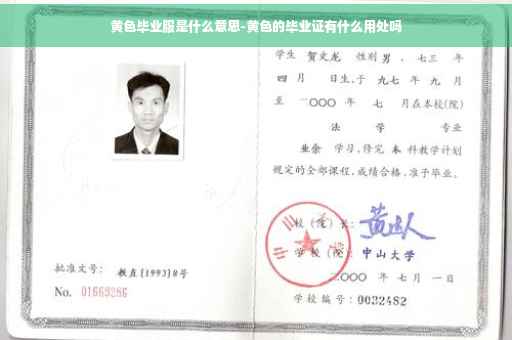 黄色毕业服是什么意思-黄色的毕业证有什么用处吗
学生 贺文龙 性别 男 、七三 年
四 月 日生,于 九七 年 九 月
至 二〇〇〇 年 七 月在本校(院)
法 学 专业
业余 学习,修完 本 科教学计划
规定的全部课程,成绩合格,准予毕业。
校(院)长:
学校(院): 中山大学
二〇〇〇 年 七 月 一 日
学校编号:0032482
批准文号: 教直(1993)8号
No. 01669286